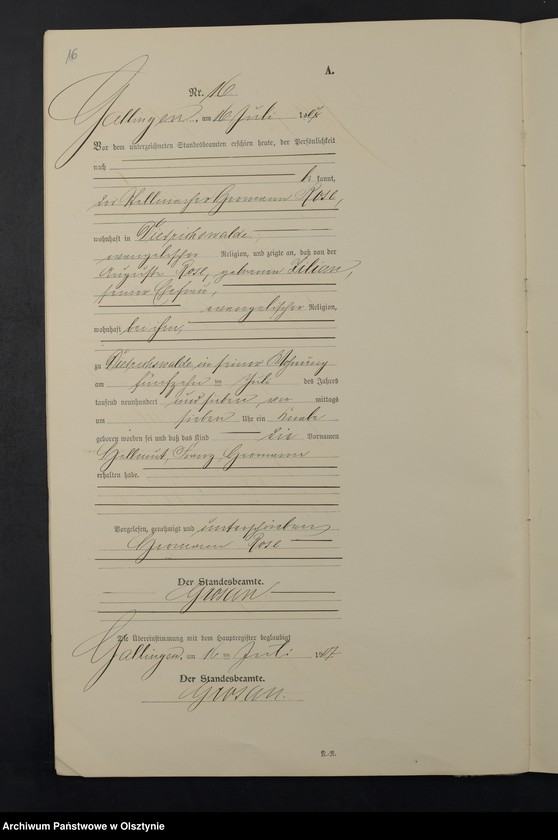 16
A.
Nr. 16
Gallingen, am 16 Juli 1907
Vor dem unterzeichneten Standesbeamten erschien heute, der Persönlichkeit
nach
be kannt,
der Stellmacher Hermann Rose,
wohnhaft in Diedrichswalde
evangelischer Religion, und zeigte an, daß von der
Auguste Rose, geborenen Zilian,
seiner Ehefrau,
evangelischer Religion,
wohnhaft bei ihm,
zu Diedrichswalde in seiner Wohnung
am fünfzehn ten Juli des Jahres
tausend neunhundert und sieben, vor mittags
um sieben Uhr ein Knabe
geboren worden sei und daß das Kind die Vornamen
Hellmut, Franz, Hermann
erhalten habe.
Vorgelesen, genehmigt und unterschrieben
Hermann Rose
Der Standesbeamte.
Die Übereinstimmung mit dem Hauptregister beglaubigt
Gallingen, am 16 ten Juli 1907
Der Standesbeamte.
Archiwum Państwowe w Olsztynie